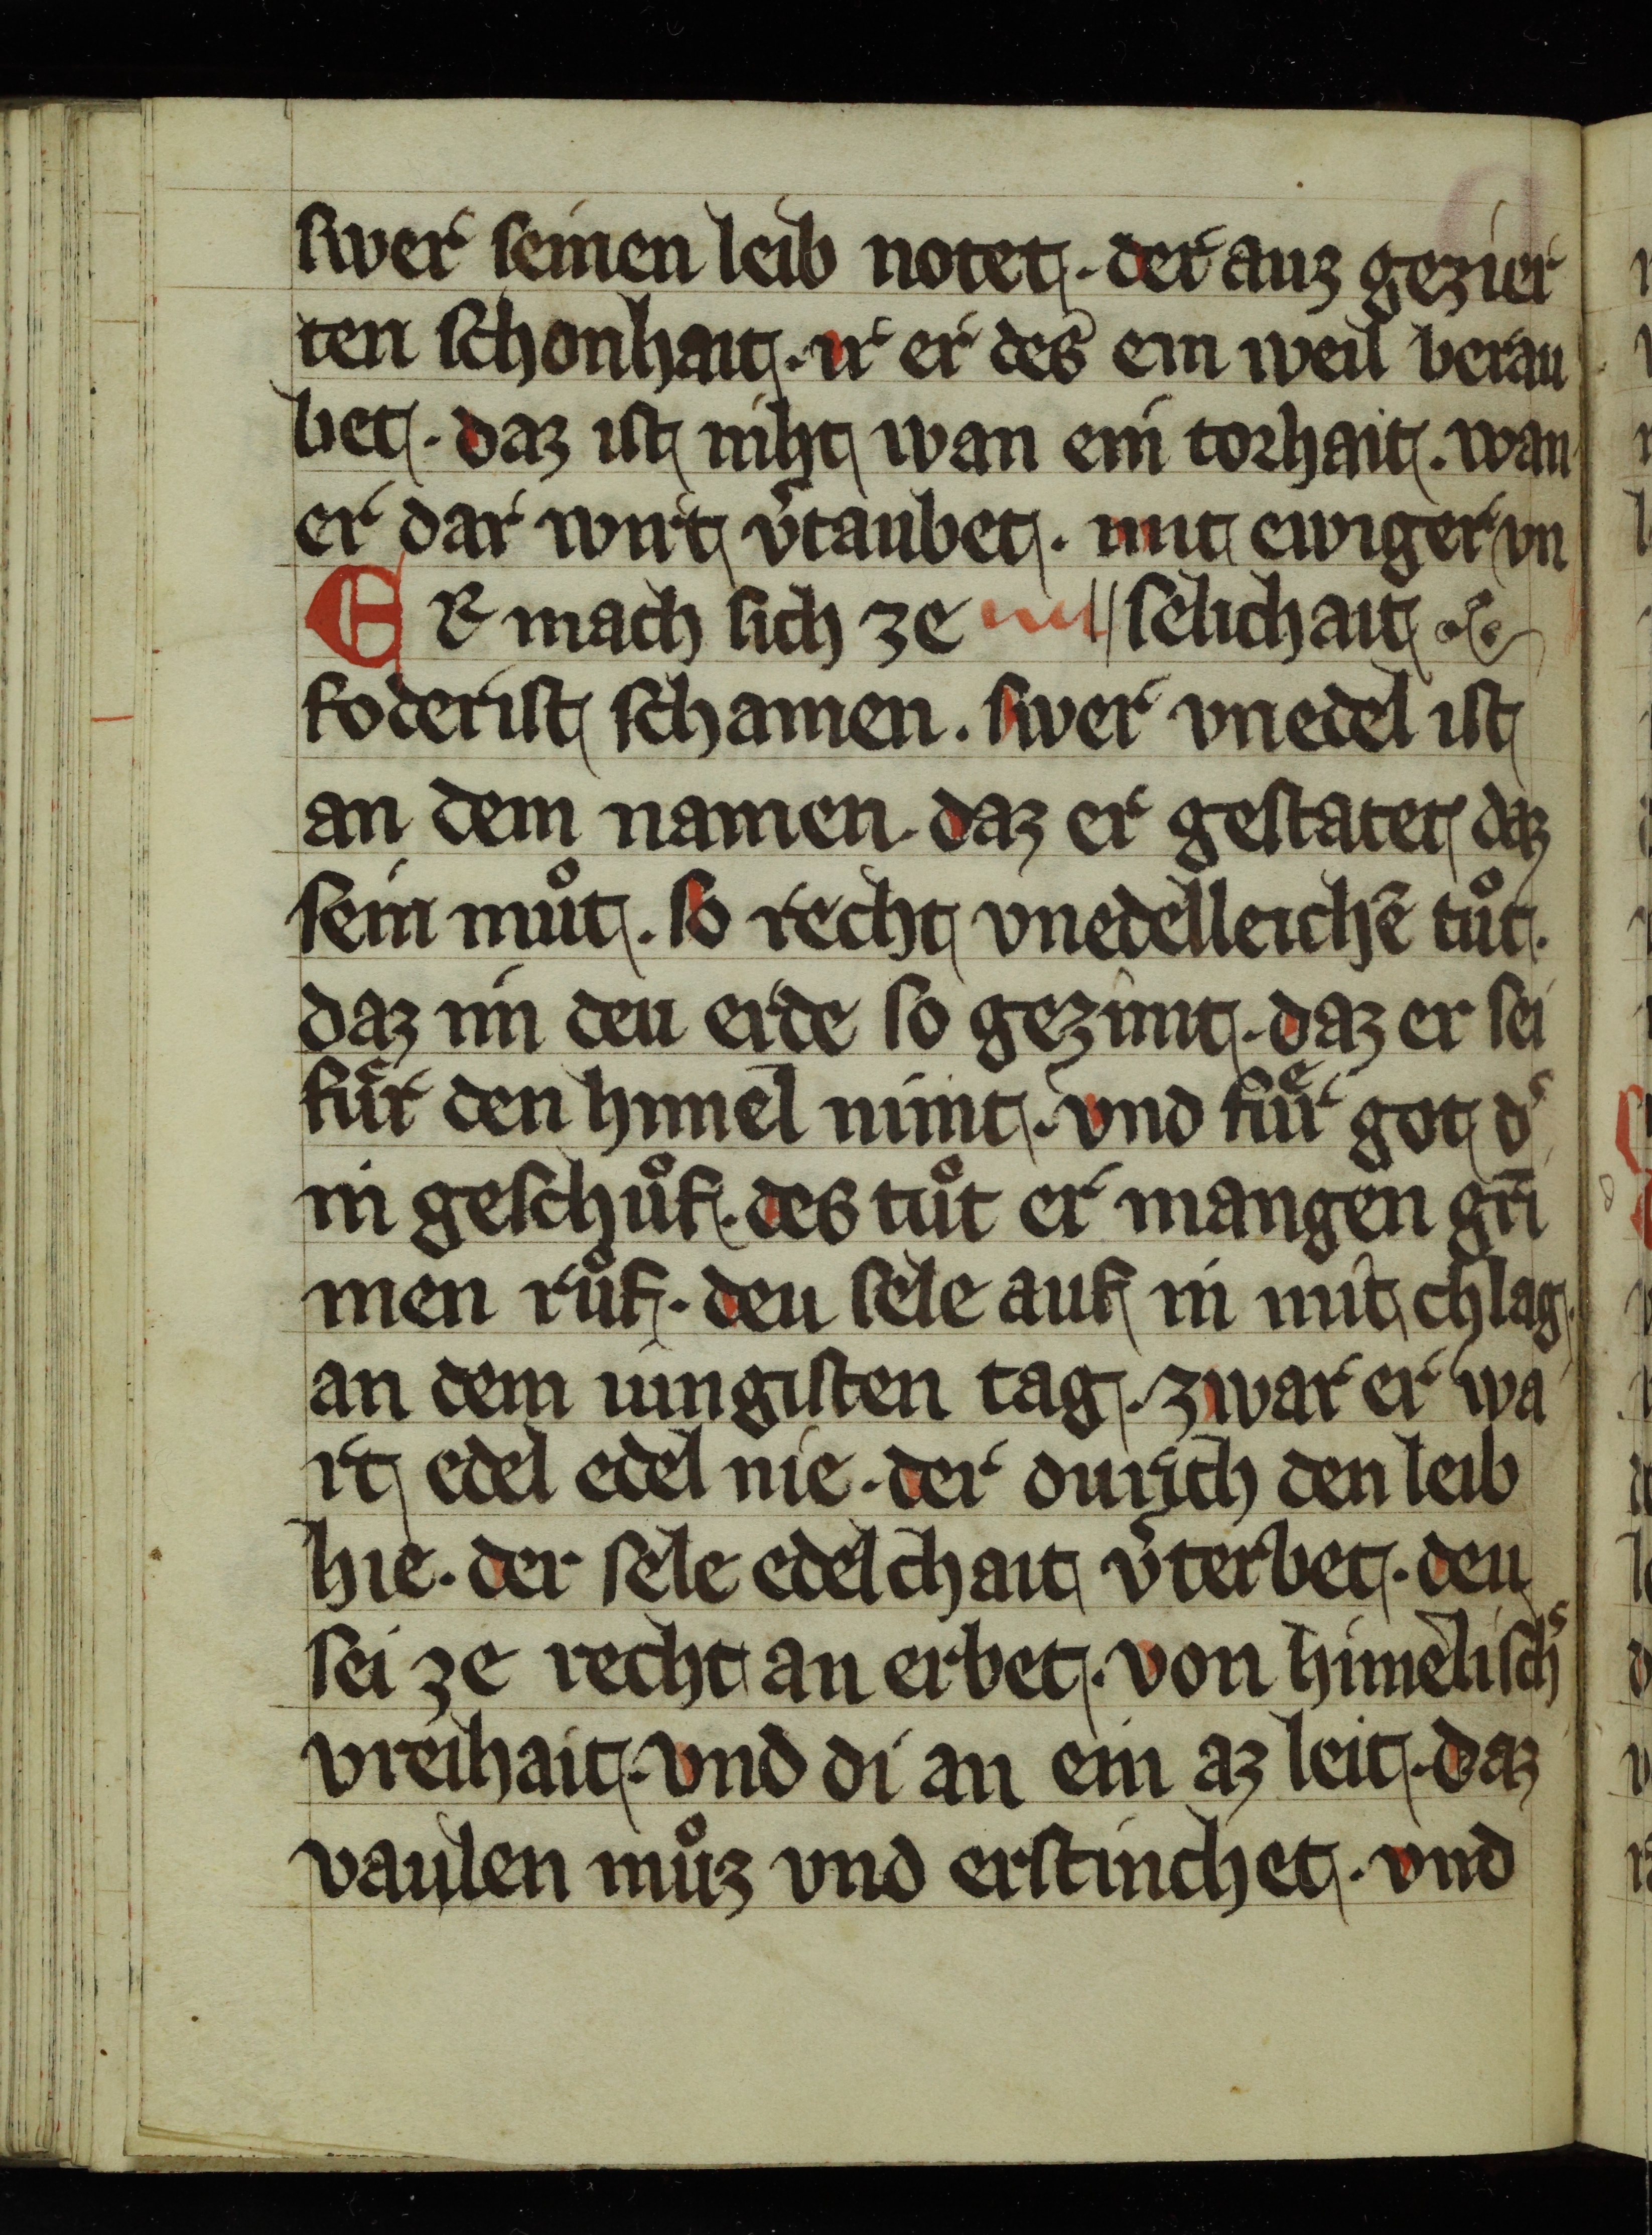 swer seinen leib notet. der auz gezier
ten schonhait. ir er des ein weil berau
bet. daz ist niht wan ein torhait. wan
er dar wirt v̾taubet. mit ewiger vn
ER mach sich ze selichait.
foderist schamen. swer vnedel ist
an dem namen. daz er gestatet daz
sein můt. so recht vnedelleichē tůt.
daz im deu erde so gezimt. daz er sei
fuͤr den himel nimt. vnd fuͤr got d̾
in geschůf. des tůt er mangen gri
men růf. deu sele auf in mit chlag.
an dem iungisten tag. zwar er wa
rt edel edel nie. der durich den leib
hie. der sele edelchait v̾terbet. deu
sei ze recht an erbet. von himelisch̾
vreihait. vnd di an ein az leit. daz
vaulen můz vnd erstinchet. vnd